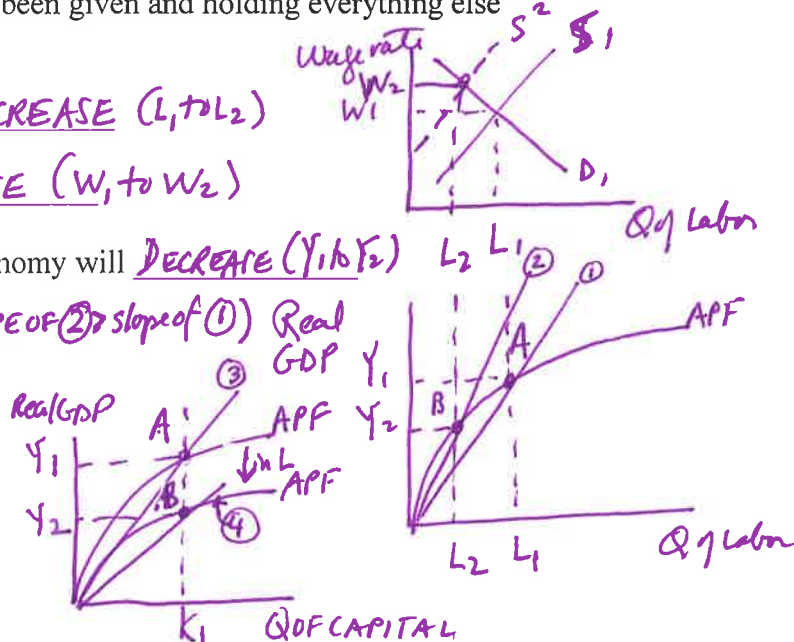 been given and holding everything else
CREASE (L₁ to L₂)
E (W₁ to W₂)
nomy will DECREASE (Y₁ to Y₂)
PE OF ② > slope of ①)
Wage rate
W₂
W₁
S²
S₁
D₁
Q of Labor
L₂ L₁
Real
GDP
Y₁
Y₂
②
①
A
B
APF
L₂ L₁
Q of Labor
Real GDP
Y₁
Y₂
③
A
APF
↓ in L
B
APF
④
K₁
Q OF CAPITAL